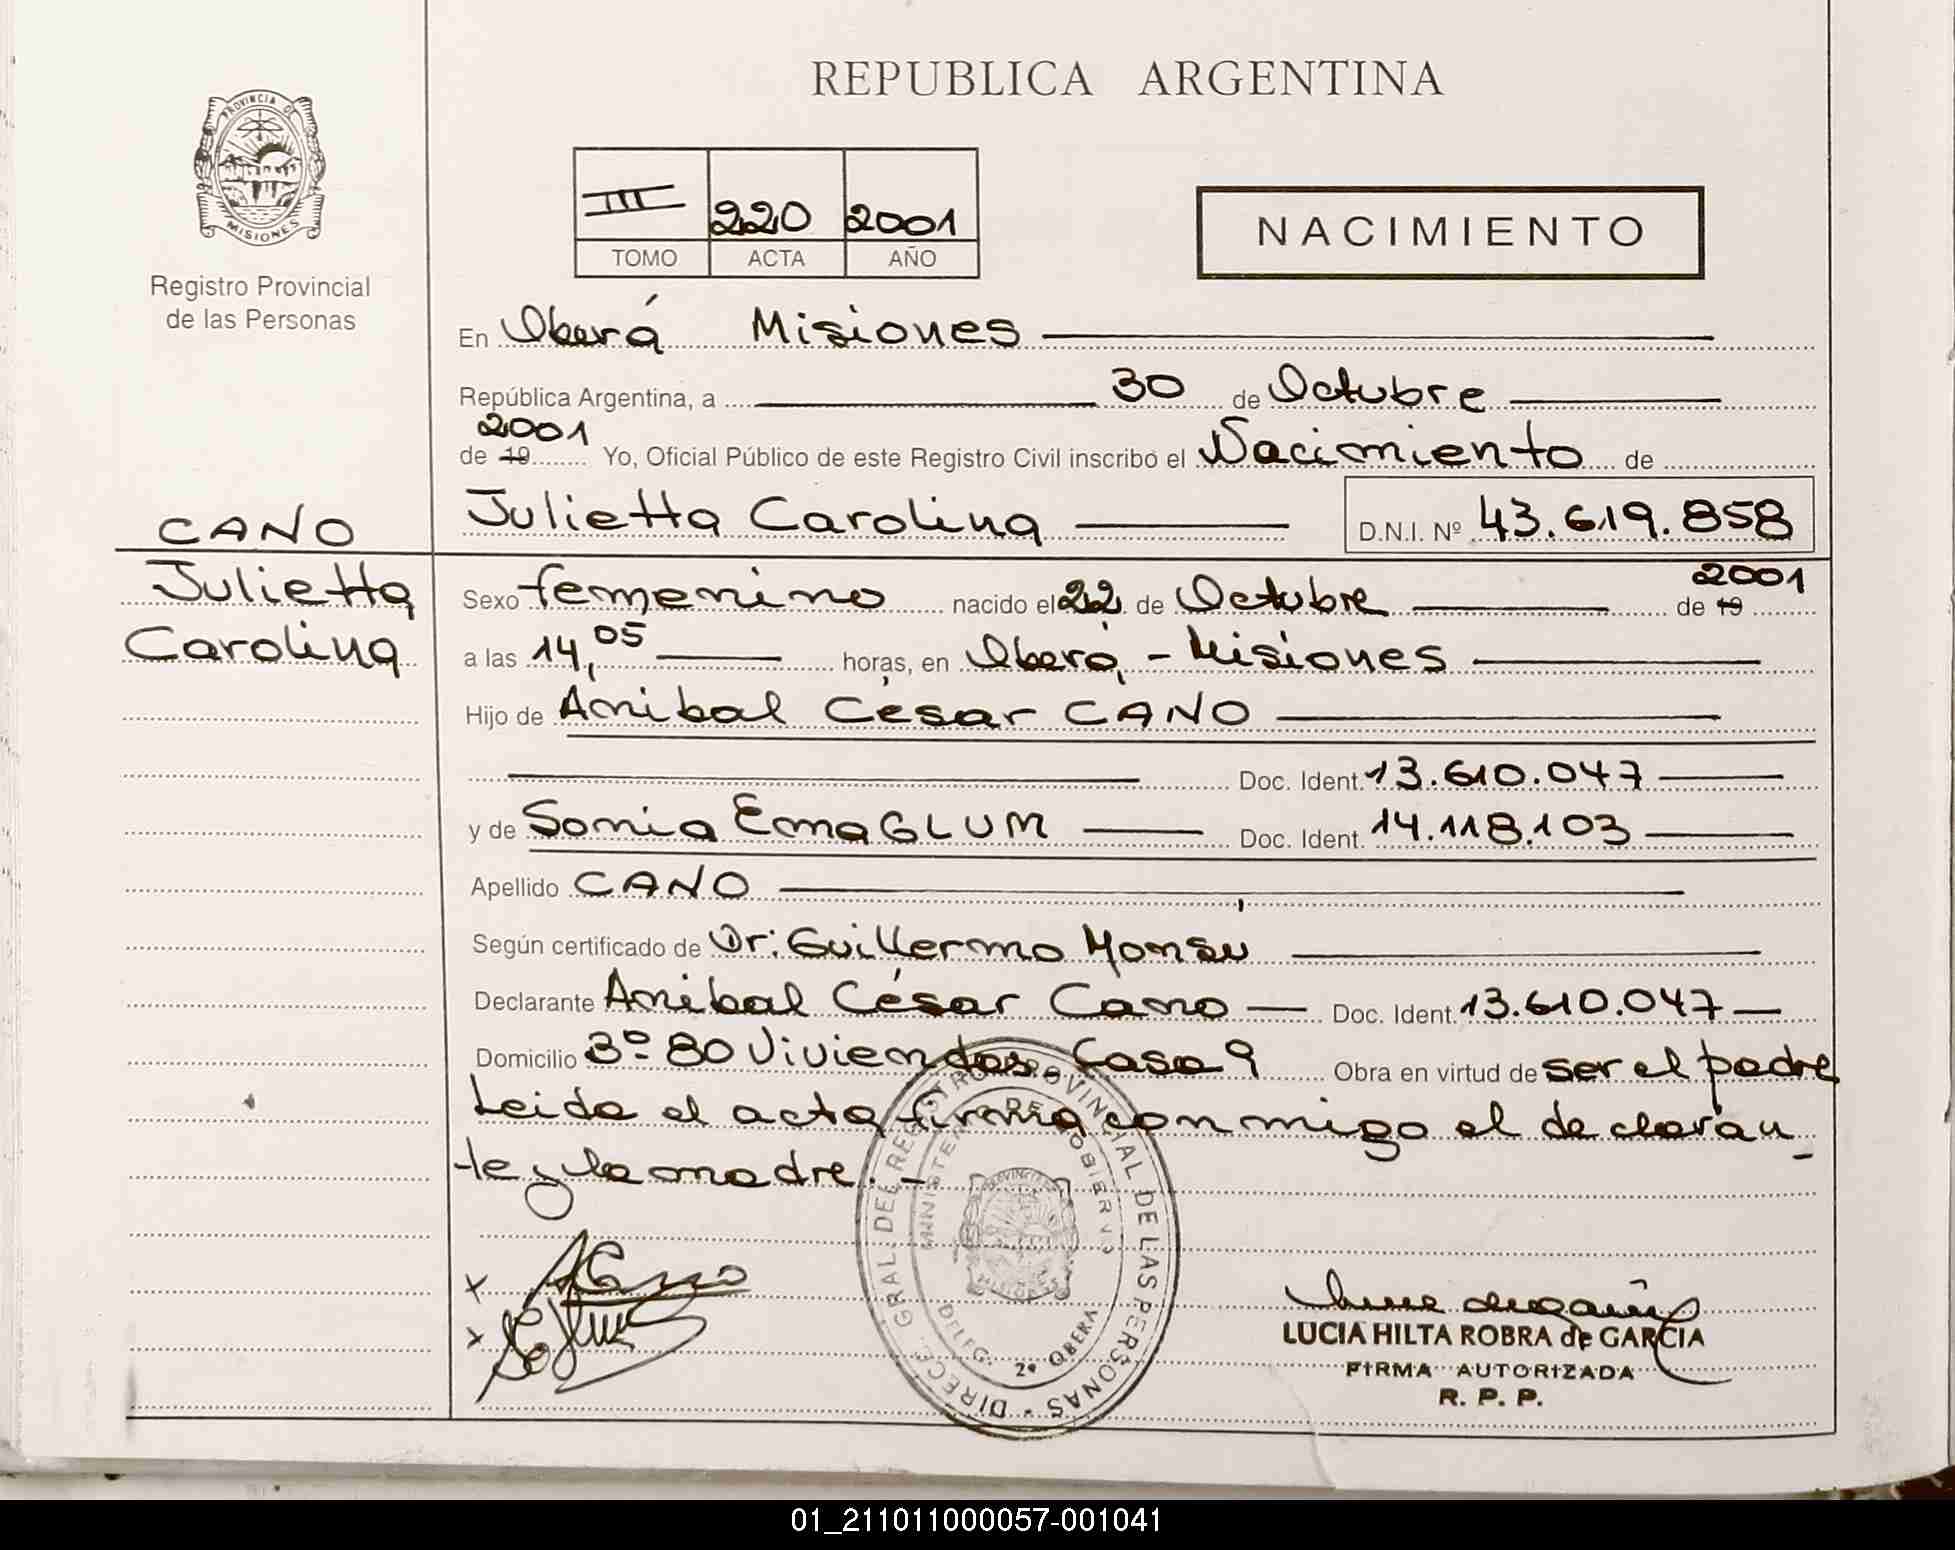 REPUBLICA ARGENTINA
PROVINCIA DE MISIONES
Registro Provincial
de las Personas
III 220 2001
TOMO ACTA AÑO
NACIMIENTO
En Oberá Misiones
República Argentina, a 30 de Octubre
2001
de 19 Yo, Oficial Público de este Registro Civil inscribo el Nacimiento de
CANO
Julietta Carolina D.N.I. Nº 43.619.858
Julietta
Carolina
2001
Sexo femenino nacido el 22 de Octubre de 19
a las 14,05 horas, en Oberá, - Misiones
Hijo de Anibal César CANO
Doc. Ident. 13.610.047
y de Sonia Ema GLUM Doc. Ident. 14.118.103
Apellido CANO
Según certificado de Dr: Guillermo Monsu
Declarante Anibal César Cano Doc. Ident. 13.610.047
Domicilio 3º 80 Viviendas - Casa 9 Obra en virtud de ser el padre
Leida el acta firma conmigo el declaran
te y la madre. -
DIRECC. GRAL. DEL REGISTRO PROVINCIAL DE LAS PERSONAS
MINISTERIO DE GOBIERNO
DELEG. 2º OBERA
LUCIA HILTA ROBRA de GARCIA
FIRMA AUTORIZADA
R. P. P.
01_211011000057-001041